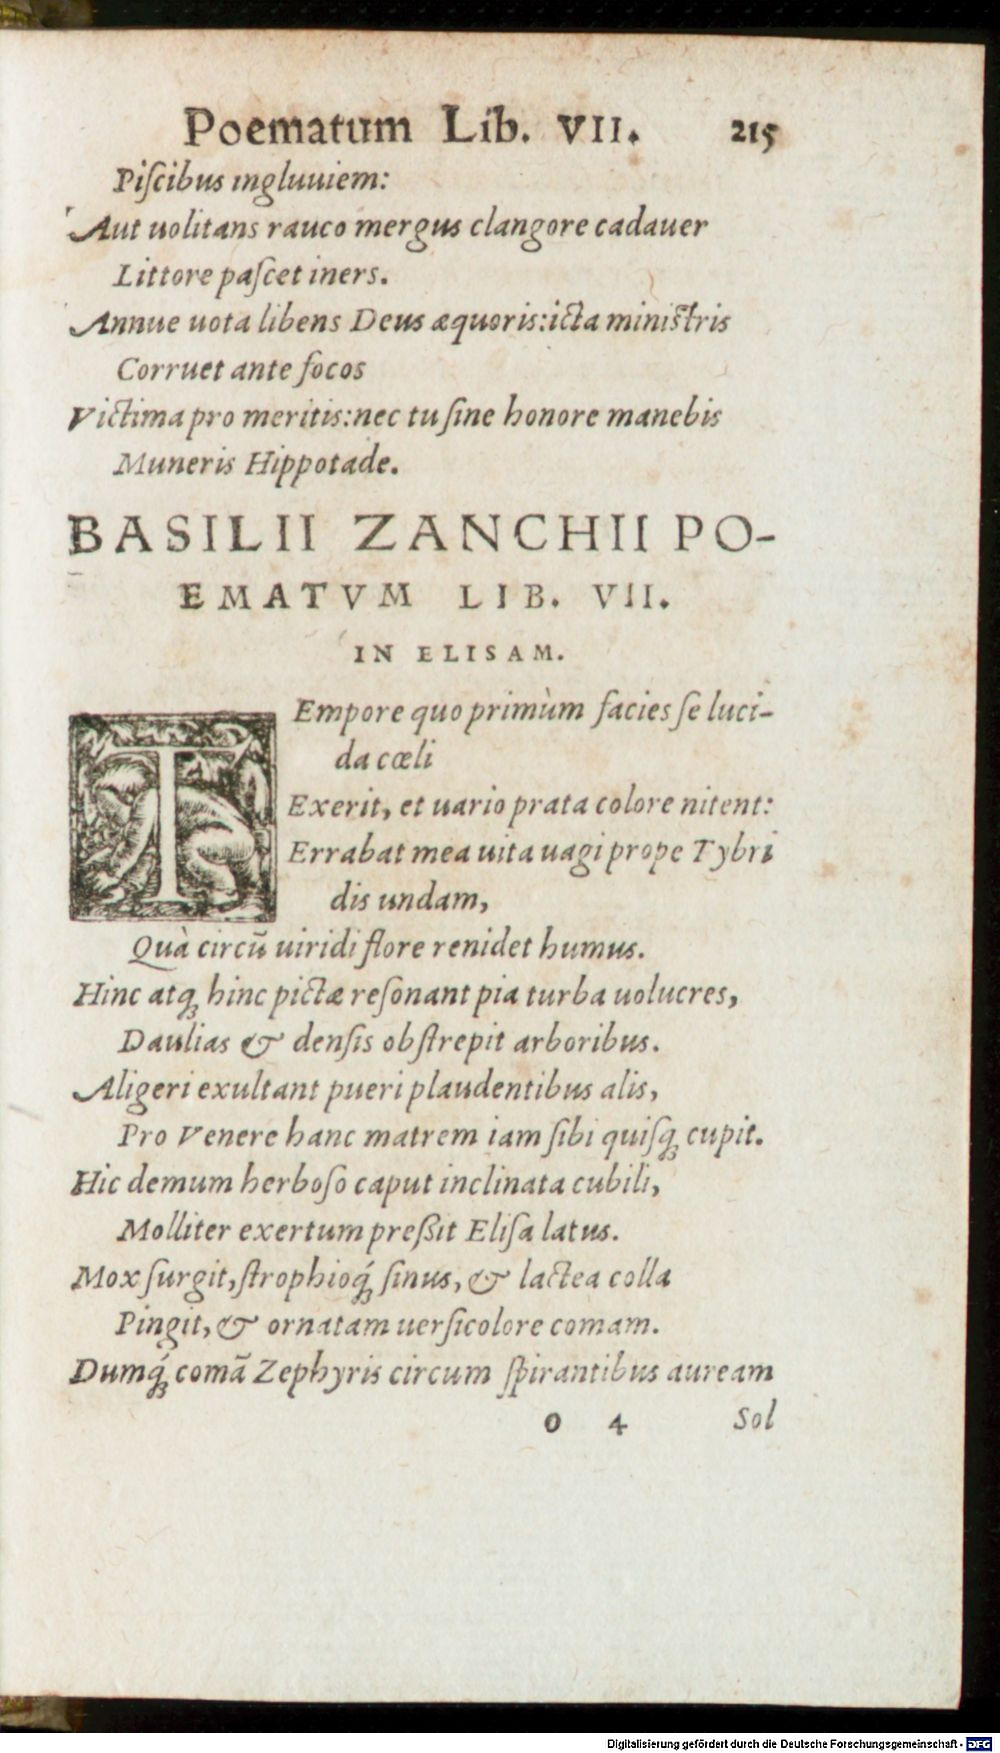 Poematum Lib. VII. 215
Piſcibus ingluuiem:
Aut uolitans rauco mergus clangore cadauer
Littore paſcet iners.
Annue uota libens Deus æquoris: icta miniſtris
Corruet ante focos
Victima pro meritis: nec tu ſine honore manebis
Muneris Hippotade.
BASILII ZANCHII PO-
EMATVM LIB. VII.
IN ELISAM.
TEmpore quo primùm facies ſe luci-
da cœli
Exerit, et uario prata colore nitent:
Errabat mea uita uagi prope Tybri
dis undam,
Quà circũ uiridi flore renidet humus.
Hinc atq; hinc pictæ reſonant pia turba uolucres,
Daulias & denſis obſtrepit arboribus.
Aligeri exultant pueri plaudentibus alis,
Pro Venere hanc matrem iam ſibi quiſq; cupit.
Hic demum herboſo caput inclinata cubili,
Molliter exertum preßit Eliſa latus.
Mox ſurgit, ſtrophioq́; ſinus, & lactea colla
Pingit, & ornatam uerſicolore comam.
Dumq́; comã Zephyris circum ſpirantibus auream
o 4 Sol
Digitalisierung gefördert durch die Deutsche Forschungsgemeinschaft - DFG